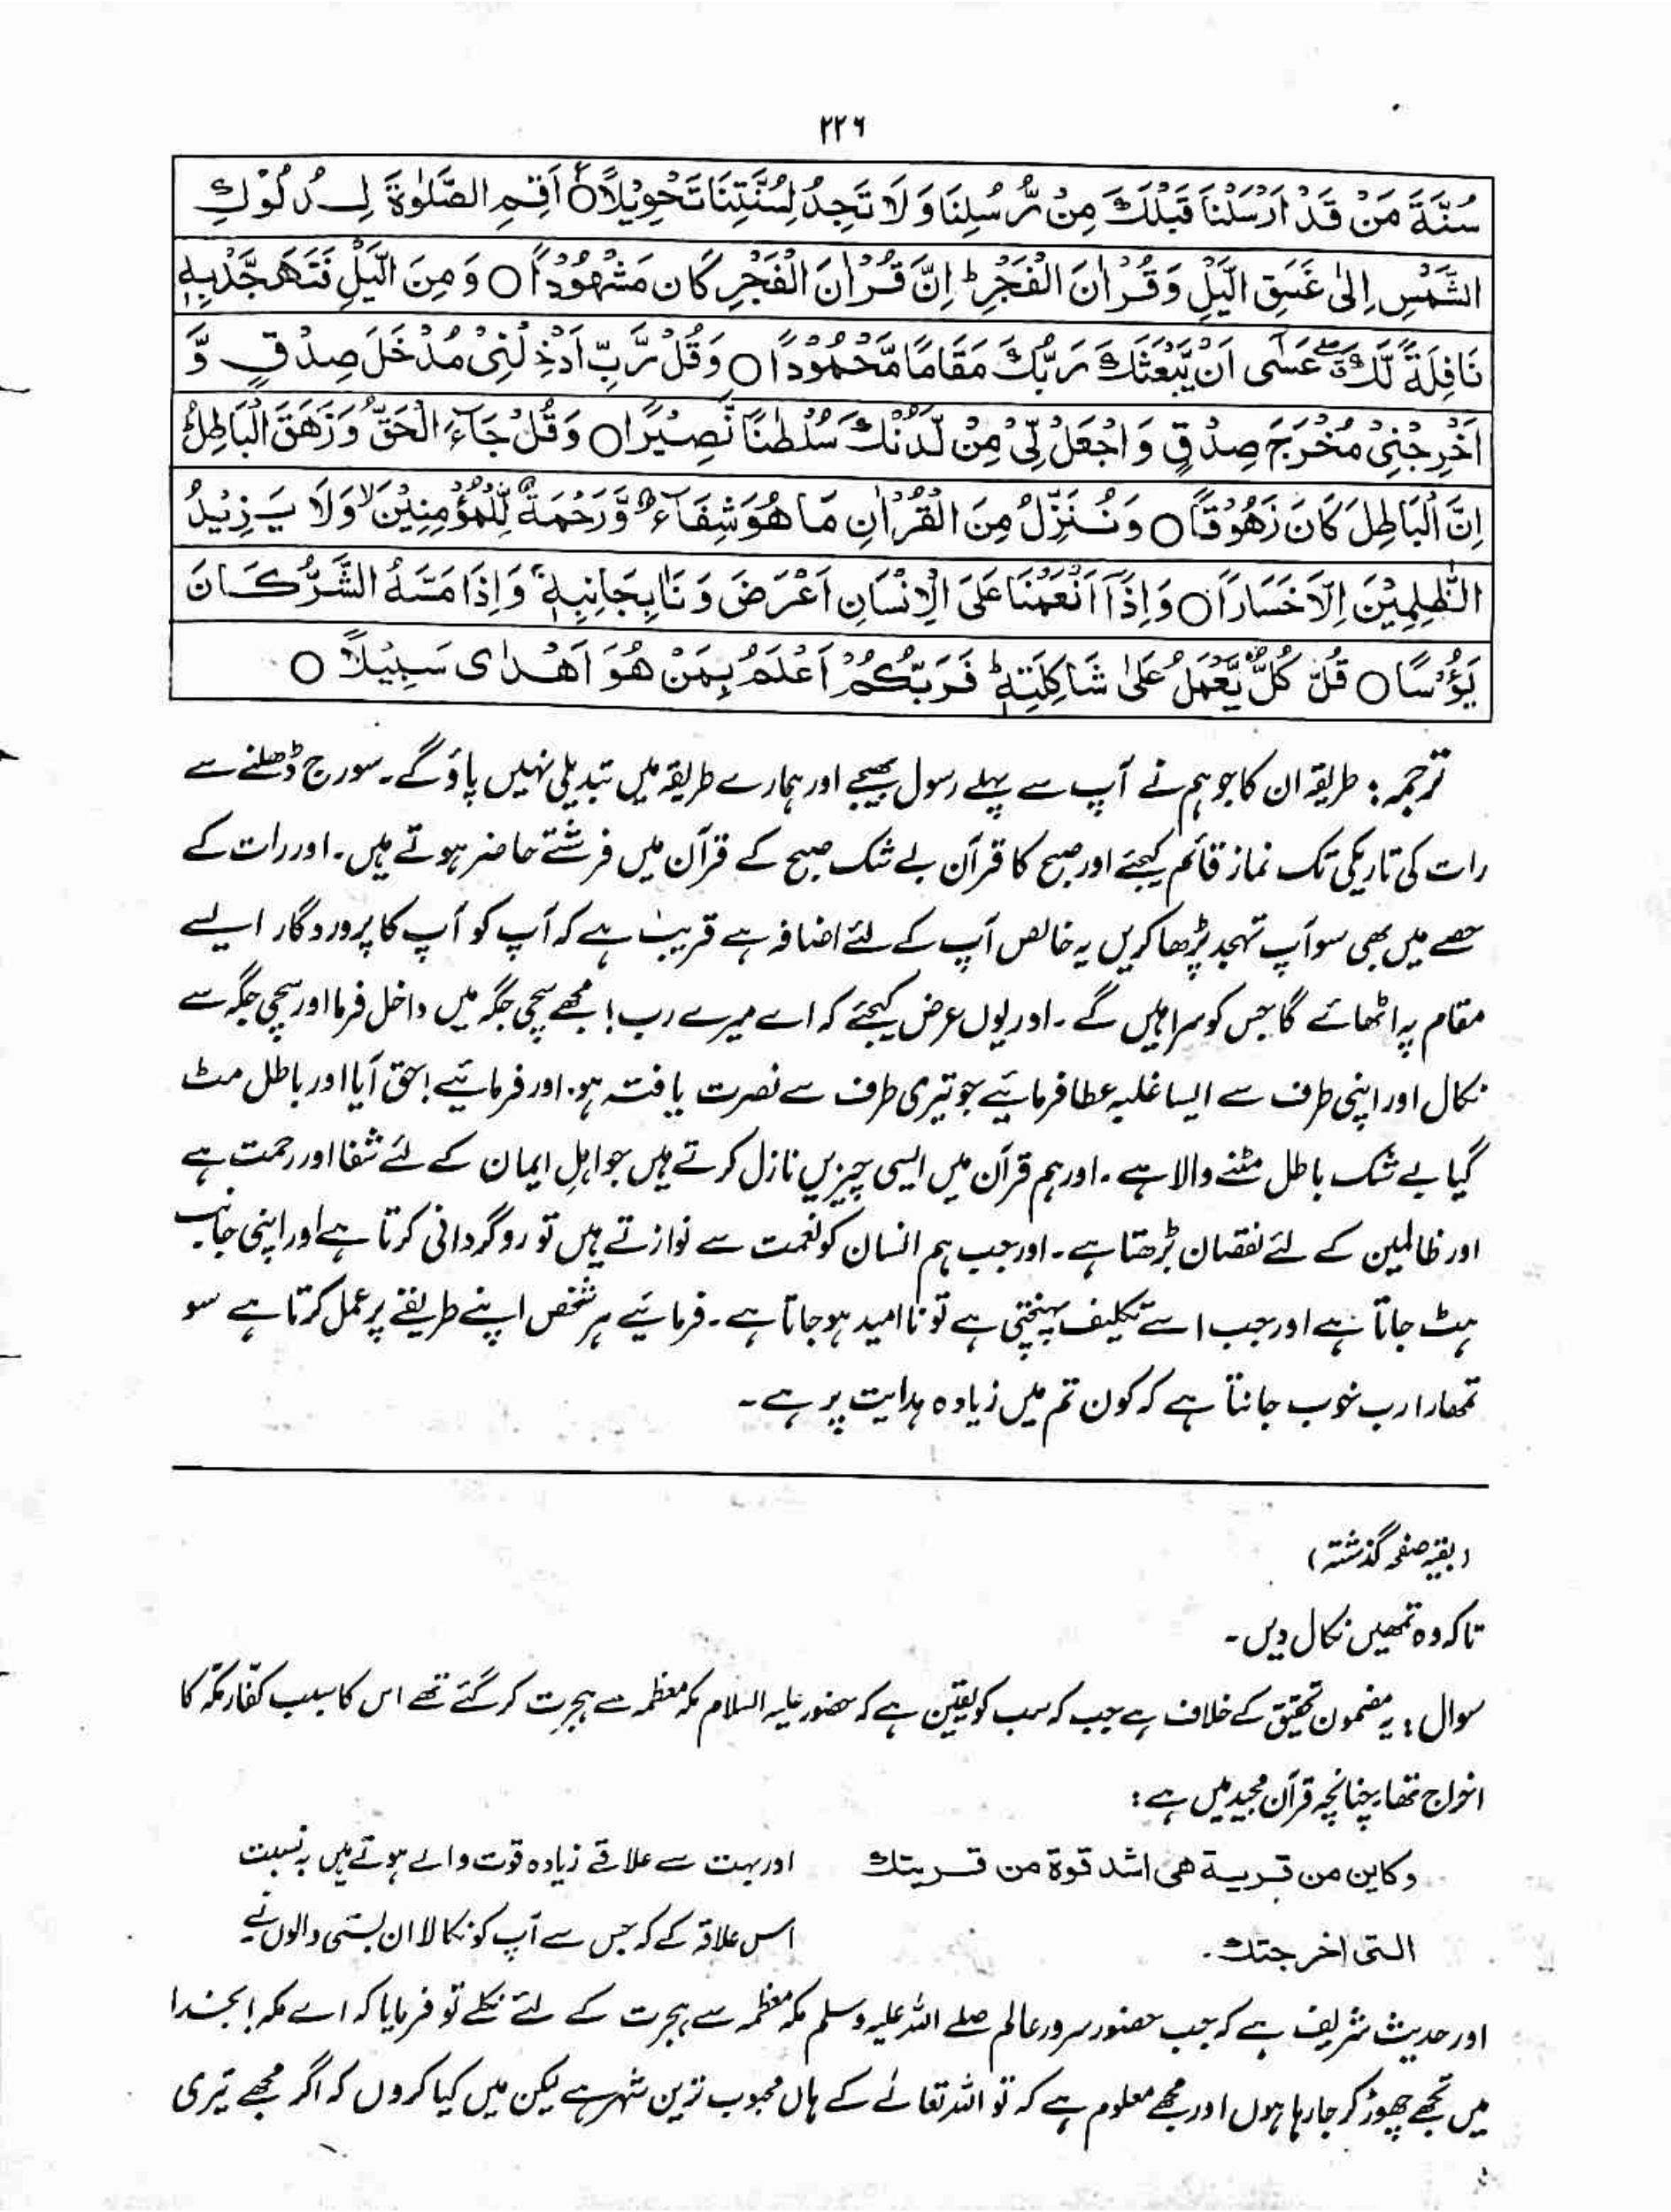 ۲۲۶
سُنَّةَ مَنْ قَدْ اَرْسَلْنَا قَبْلَكَ مِنْ رُّسُلِنَا وَلَا تَجِدُ لِسُنَّتِنَا تَحْوِيْلًا ۝ اَقِمِ الصَّلٰوةَ لِدُلُوْكِ
الشَّمْسِ اِلٰى غَسَقِ الَّيْلِ وَقُرْاٰنَ الْفَجْرِ ؕ اِنَّ قُرْاٰنَ الْفَجْرِ كَانَ مَشْهُوْدًا ۝ وَمِنَ الَّيْلِ فَتَهَجَّدْ بِهٖ
نَافِلَةً لَّكَ ۖ عَسٰۤى اَنْ يَّبْعَثَكَ رَبُّكَ مَقَامًا مَّحْمُوْدًا ۝ وَقُلْ رَّبِّ اَدْخِلْنِيْ مُدْخَلَ صِدْقٍ وَّ
اَخْرِجْنِيْ مُخْرَجَ صِدْقٍ وَّاجْعَلْ لِّيْ مِنْ لَّدُنْكَ سُلْطٰنًا نَّصِيْرًا ۝ وَقُلْ جَآءَ الْحَقُّ وَزَهَقَ الْبَاطِلُ
اِنَّ الْبَاطِلَ كَانَ زَهُوْقًا ۝ وَنُنَزِّلُ مِنَ الْقُرْاٰنِ مَا هُوَ شِفَآءٌ وَّرَحْمَةٌ لِّلْمُؤْمِنِيْنَ ۙ وَلَا يَزِيْدُ
الظّٰلِمِيْنَ اِلَّا خَسَارًا ۝ وَاِذَآ اَنْعَمْنَا عَلَى الْاِنْسَانِ اَعْرَضَ وَنَاٰ بِجَانِبِهٖ ۚ وَاِذَا مَسَّهُ الشَّرُّ كَانَ
يَؤُسًا ۝ قُلْ كُلٌّ يَّعْمَلُ عَلٰى شَاكِلَتِهٖ ؕ فَرَبُّكُمْ اَعْلَمُ بِمَنْ هُوَ اَهْدٰى سَبِيْلًا ۝
ترجمہ: طریقہ ان کا جو ہم نے آپ سے پہلے رسول بھیجے اور ہمارے طریقہ میں تبدیلی نہیں پاؤ گے۔ سورج ڈھلنے سے
رات کی تاریکی تک نماز قائم کیجئے اور صبح کا قرآن بے شک صبح کے قرآن میں فرشتے حاضر ہوتے ہیں۔ اور رات کے
حصے میں بھی سو آپ تہجد پڑھا کریں یہ خالص آپ کے لئے اضافہ ہے قریب ہے کہ آپ کو آپ کا پروردگار ایسے
مقام پر اٹھائے گا جس کو سراہیں گے۔ اور یوں عرض کیجئے کہ اے میرے رب! مجھے سچی جگہ میں داخل فرما اور سچی جگہ سے
نکال اور اپنی طرف سے ایسا غلبہ عطا فرمائیے جو تیری طرف سے نصرت یافتہ ہو۔ اور فرمائیے! حق آیا اور باطل مٹ
گیا بے شک باطل مٹنے والا ہے۔ اور ہم قرآن میں ایسی چیزیں نازل کرتے ہیں جو اہلِ ایمان کے لئے شفا اور رحمت ہے
اور ظالمین کے لئے نقصان بڑھتا ہے۔ اور جب ہم انسان کو نعمت سے نوازتے ہیں تو روگردانی کرتا ہے اور اپنی جانب
ہٹ جاتا ہے اور جب اسے تکلیف پہنچتی ہے تو ناامید ہو جاتا ہے۔ فرمائیے ہر شخص اپنے طریقے پر عمل کرتا ہے سو
تمھارا رب خوب جانتا ہے کہ کون تم میں زیادہ ہدایت پر ہے۔
(بقیہ صفحہ گذشتہ)
تاکہ وہ تمھیں نکال دیں۔
سوال: یہ مضمون تحقیق کے خلاف ہے جب کہ سب کو یقین ہے کہ حضور علیہ السلام مکہ معظمہ سے ہجرت کر گئے تھے اس کا سبب کفّار مکّہ کا
اخراج تھا۔ چنانچہ قرآن مجید میں ہے:
وکاین من قریة هی اشد قوة من قریتك اور بہت سے علاقے زیادہ قوت والے ہوتے ہیں بہ نسبت
التی اخرجتك۔ اس علاقہ کے کہ جس سے آپ کو نکالا ان بستی والوں نے
اور حدیث شریف ہے کہ جب حضور سرور عالم صلے اللہ علیہ وسلم مکہ معظمہ سے ہجرت کے لئے نکلے تو فرمایا کہ اے مکہ! بخدا
میں تجھے چھوڑ کر جا رہا ہوں اور مجھے معلوم ہے کہ تو اللہ تعالےٰ کے ہاں محبوب ترین شہر ہے لیکن میں کیا کروں کہ اگر مجھے تیری